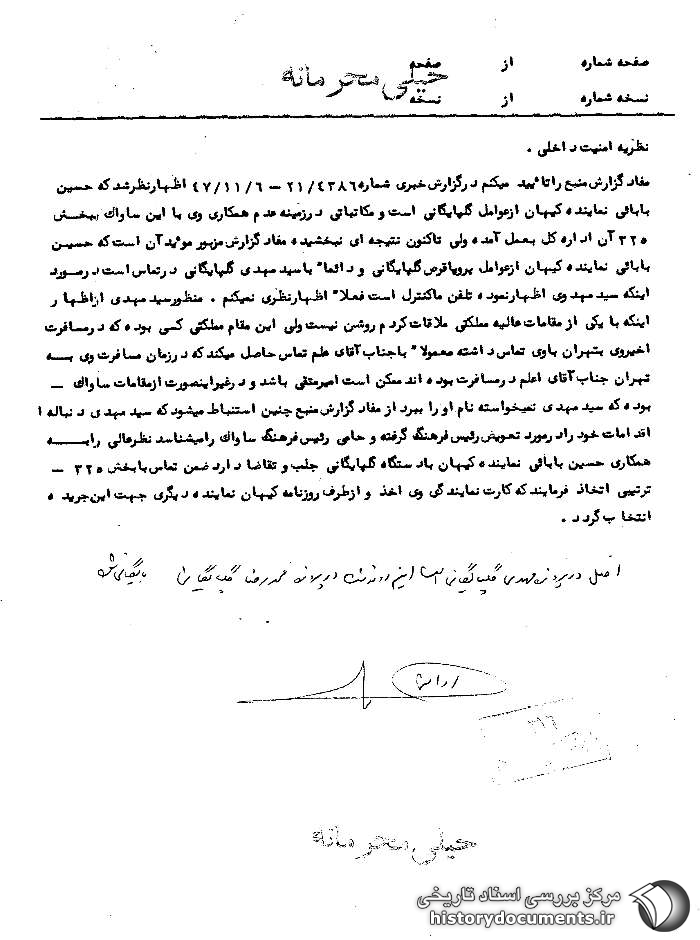 صفحه شماره از صفحه
خیلی محرمانه
نسخه شماره از نسخه
نظریه امنیت داخلی .
مفاد گزارش منبع را تائید میکنم در گزارش خبری شماره ۲۱/۴۳۸۶ – ۴۷/۱۱/۶ اظهارنظر شد که حسین
بابائی نماینده کیهان از عوامل گلپایگانی است و مکاتباتی در زمینه عدم همکاری وی با این ساواک ببخش
۳۲۵ آن اداره کل بعمل آمده ولی تاکنون نتیجه ای نبخشیده مفاد گزارش مزبور موئید آن است که حسین
بابائی نماینده کیهان از عوامل پروپاقرص گلپایگانی و دائما" با سید مهدی گلپایگانی در تماس است در مورد
اینکه سید مهدوی اظهار نموده تلفن ما کنترل است فعلا" اظهارنظری نمیکنم . منظور سید مهدی از اظهار
اینکه با یکی از مقامات عالیه مملکتی ملاقات کردم روشن نیست ولی این مقام مملکتی کسی بوده که در مسافرت
اخیر وی بتهران با وی تماس داشته معمولا" با جناب آقای علم تماس حاصل میکند که در زمان مسافرت وی به
تهران جناب آقای اعلم در مسافرت بوده اند ممکن است امیرمتقی باشد و در غیر اینصورت از مقامات ساواک –
بوده که سید مهدی نمیخواسته نام او را ببرد از مفاد گزارش منبع چنین استنباط میشود که سید مهدی دنباله
اقدامات خود را در مورد تعویض رئیس فرهنگ گرفته و حامی رئیس فرهنگ ساواک را میشناسد نظر عالی را به
همکاری حسین بابائی نماینده کیهان با دستگاه گلپایگانی جلب و تقاضا دارد ضمن تماس با بخش ۳۲۵ –
ترتیبی اتخاذ فرمایند که کارت نمایندگی وی اخذ و از طرف روزنامه کیهان نماینده دیگری جهت این جریده
انتخاب گردد .
اصل در پرونده مهدی گلپایگانی است این در پرونده محمدرضا گلپایگانی بایگانی شد
خیلی محرمانه
مرکز بررسی اسناد تاریخی
historydocuments.ir